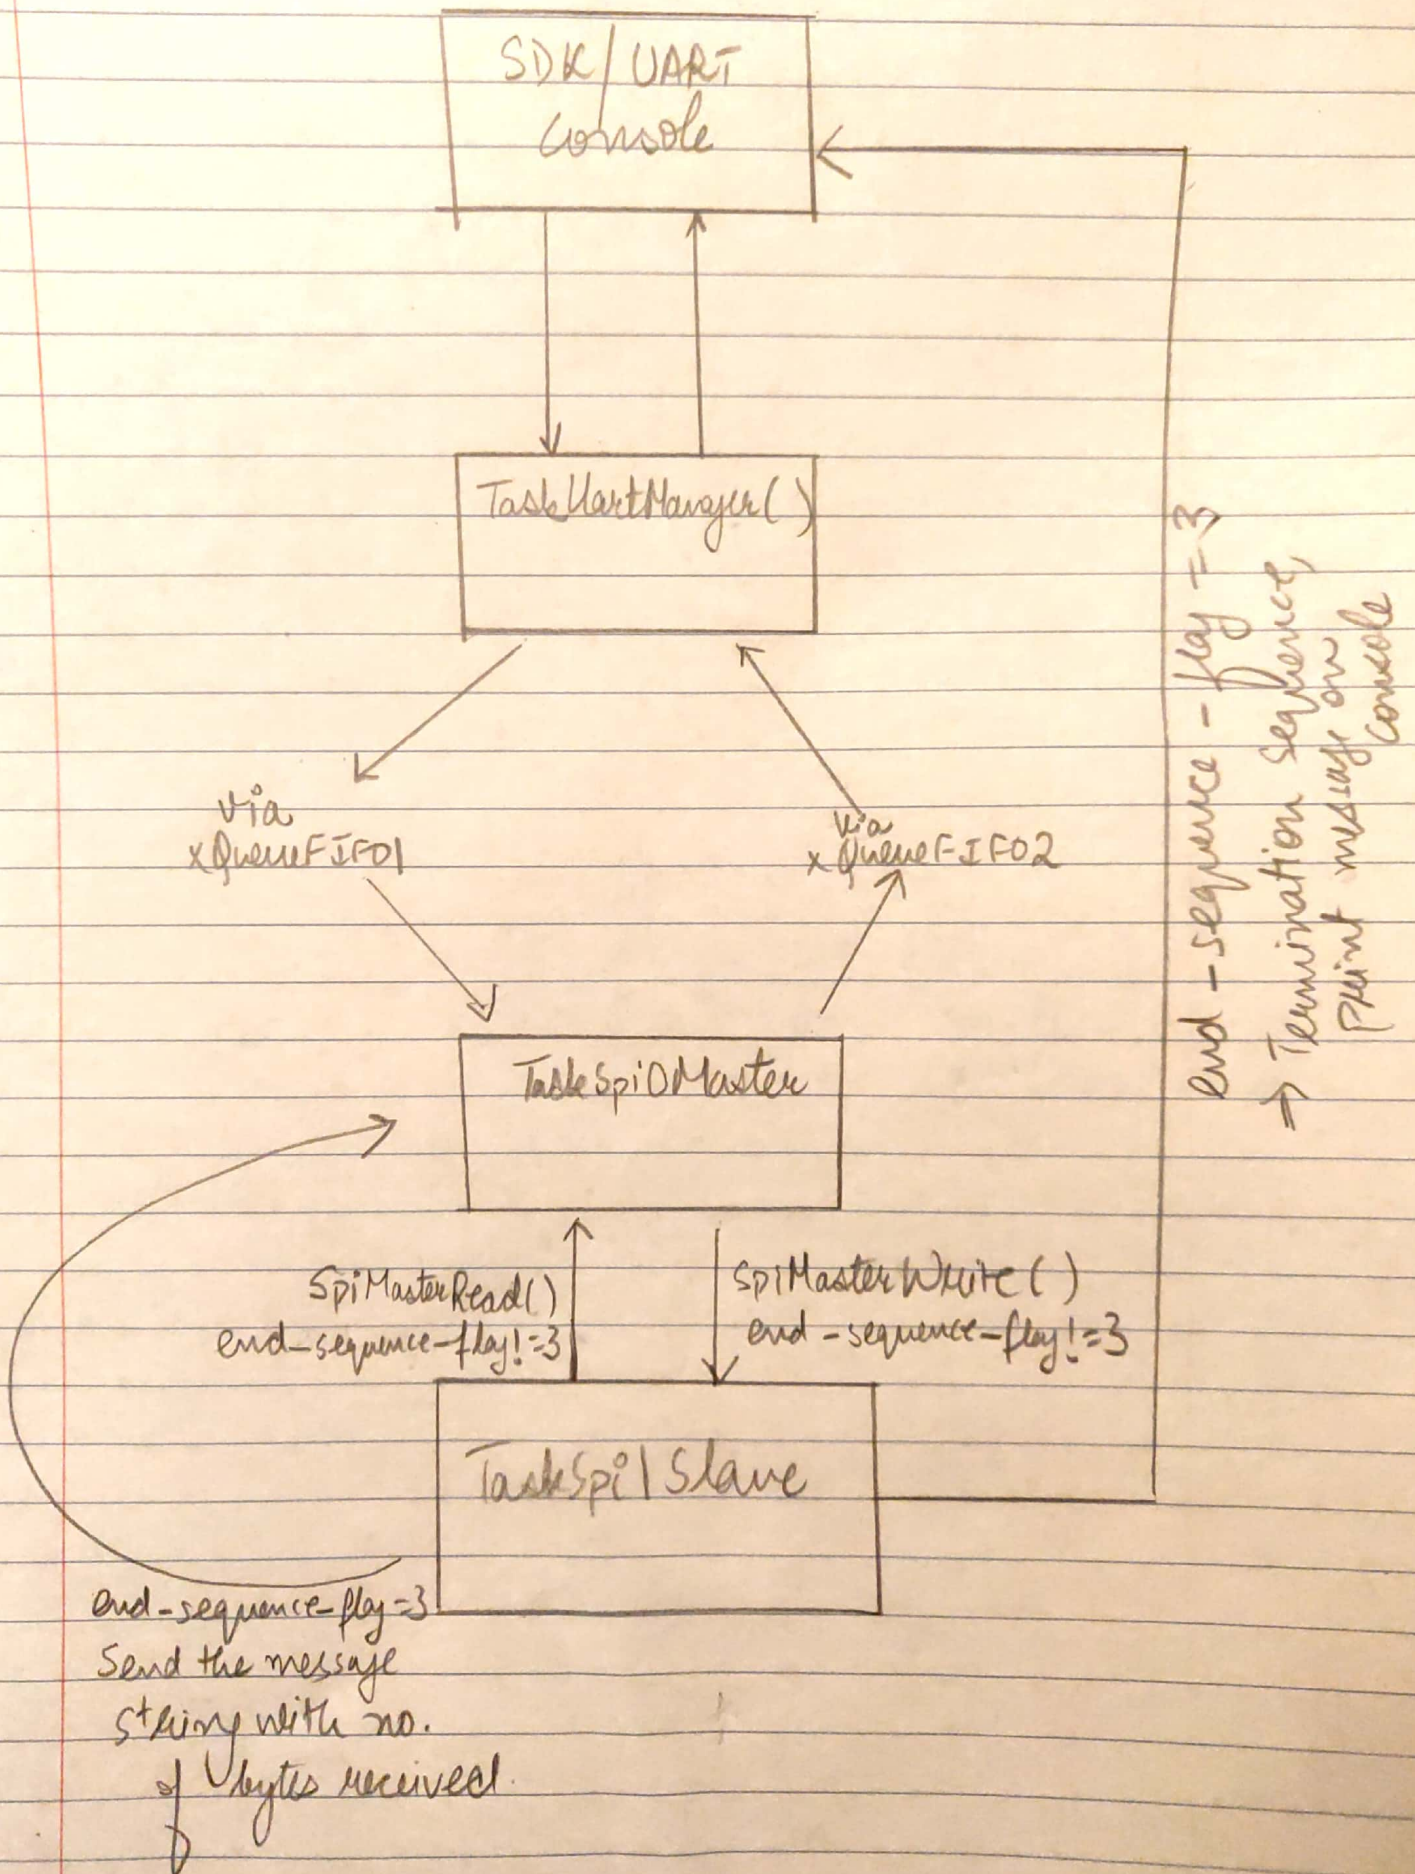 SDK/UART
Console
TaskUartManager()
via
xQueueFIFO1
via
xQueueFIFO2
TaskSpi0Master
SpiMasterRead()
end-sequence-flag!=3
SpiMasterWrite()
end-sequence-flag!=3
TaskSpi1Slave
end-sequence-flag=3
Send the message
string with no.
of bytes received.
end-sequence-flag=3
→ Termination sequence,
print message on
console